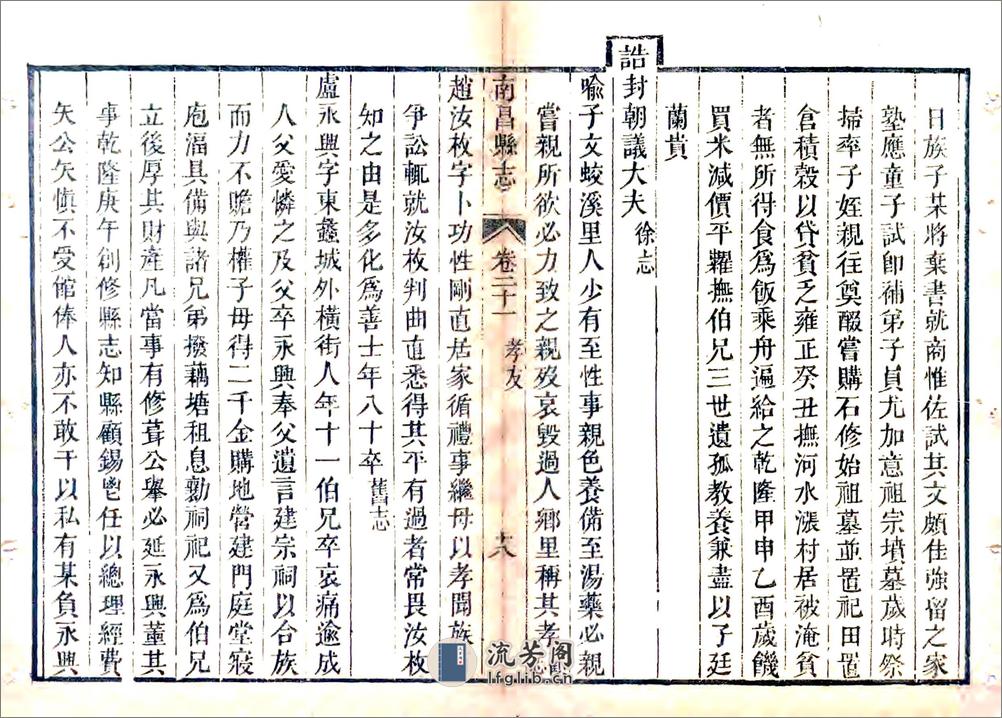 日族子某將棄書就商惟佐試其文頗佳強留之家
塾應童子試即補弟子員尤加意祖宗墳墓歲時祭
掃率子姪親往奠醊嘗購石修始祖墓並置祀田置
倉積穀以貸貧乏雍正癸丑撫河水漲村居被淹貧
者無所得食爲飯乘舟遍給之乾隆甲申乙酉歲饑
買米減價平糶撫伯兄三世遺孤教養兼盡以子廷
蘭貴
誥封朝議大夫 徐志
喩子文蛟溪里人少有至性事親色養備至湯藥必親
嘗親所欲必力致之親歿哀毀過人鄉里稱其孝
南昌縣志 卷二十一 孝友 十八
趙汝枚字卜功性剛直居家循禮事繼母以孝聞族
爭訟輒就汝枚判曲直悉得其平有過者常畏汝枚
知之由是多化爲善士年八十卒 舊志
盧永興字東蠡城外橫街人年十一伯兄卒哀痛逾成
人父愛憐之及父卒永興奉父遺言建宗祠以合族
而力不贍乃權子母得二千金購地營建門庭堂寢
庖湢具備與諸兄弟撥藕塘租息勷祠祀又爲伯兄
立後厚其財產凡當事有修葺公舉必延永興董其
事乾隆庚午創修縣志知縣顧錫鬯任以總理經費
矢公矢愼不受館俸人亦不敢干以私有某負永興
流芳閣
lfglib.cn